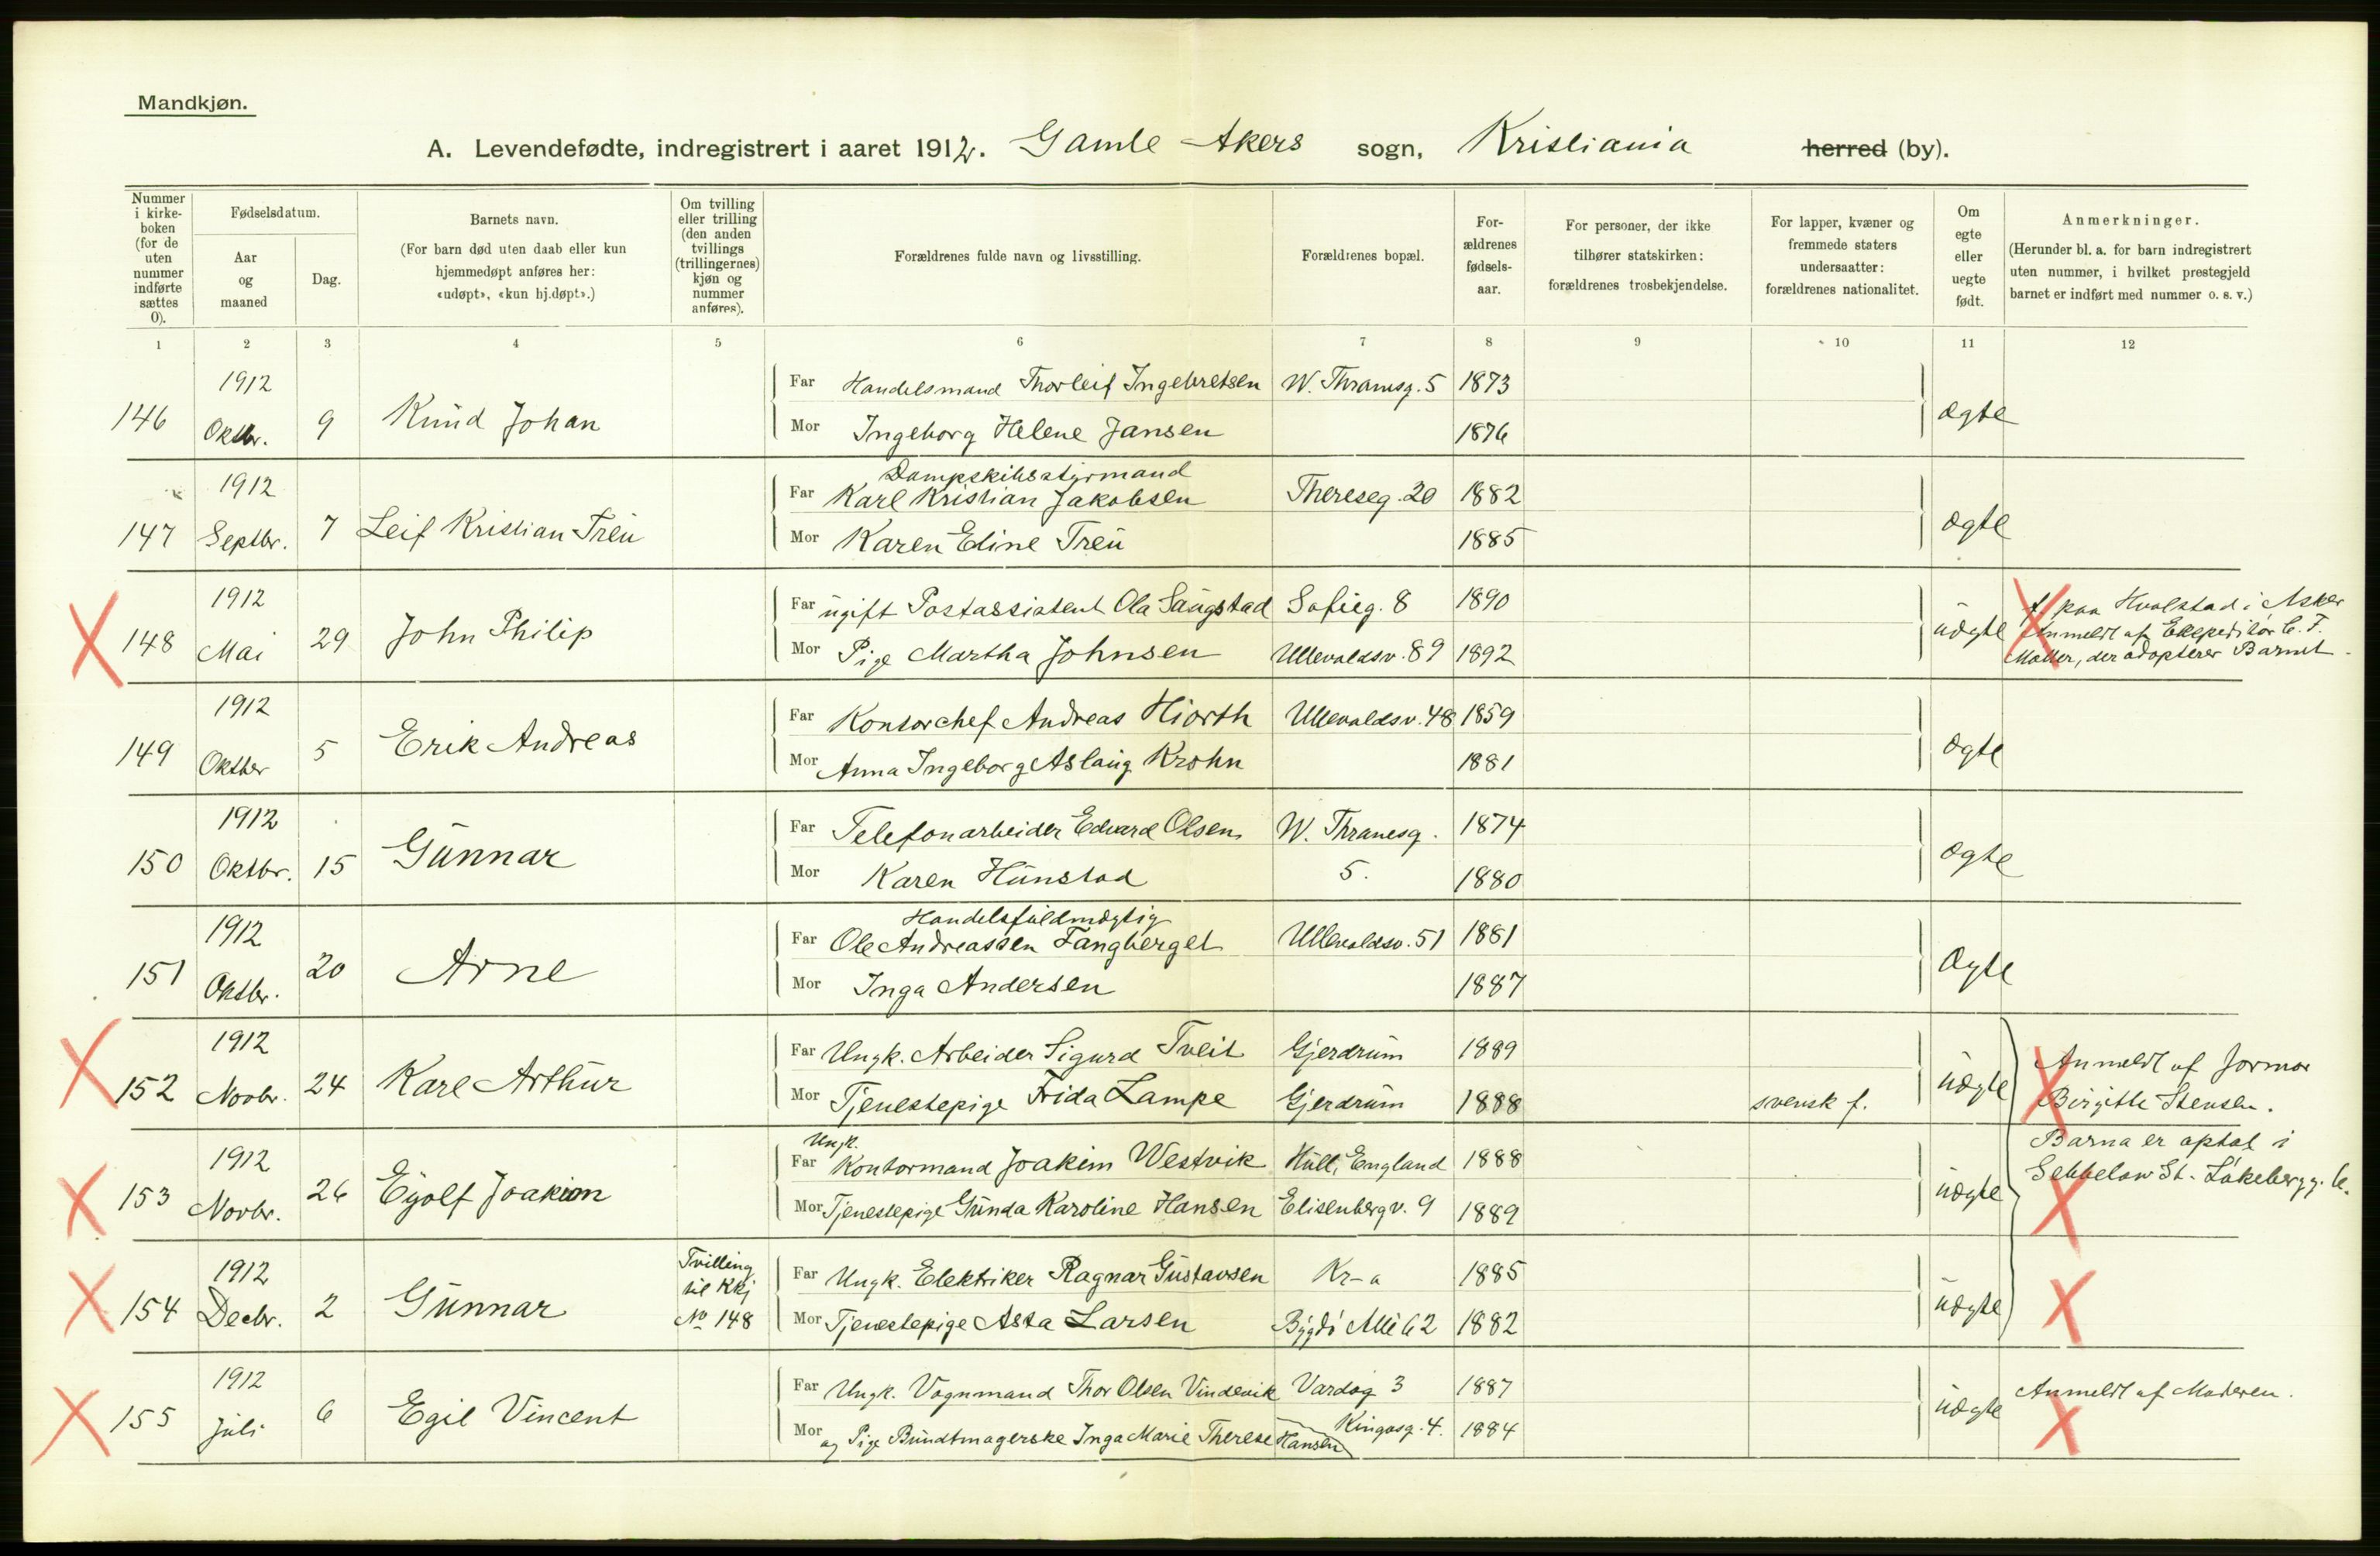 Mandkjøn.
A. Levendefødte, indregistrert i aaret 1912. Gamle Akers sogn, Kristiania herred (by).
Nummer i kirkeboken (for de uten nummer indførte sættes 0).
Fødselsdatum.
Aar og maaned
Dag.
Barnets navn.
(For barn død uten daab eller kun hjemmedøpt anføres her: «udøpt», «kun hj.døpt».)
Om tvilling eller trilling (den anden tvillings (trillingernes) kjøn og nummer anføres).
Forældrenes fulde navn og livsstilling.
Forældrenes bopæl.
For-ældrenes fødsels-aar.
For personer, der ikke tilhører statskirken: forældrenes trosbekjendelse.
For lapper, kvæner og fremmede staters undersaatter: forældrenes nationalitet.
Om egte eller uegte født.
Anmerkninger.
(Herunder bl. a. for barn indregistrert uten nummer, i hvilket prestegjeld barnet er indført med nummer o. s. v.)
1 2 3 4 5 6 7 8 9 10 11 12
146 1912 Oktbr. 9 Knud Johan
Far Handelsmand Thorleif Ingebretsen W. Thranesg. 5 1873
Mor Ingeborg Helene Jansen 1876
ægte
147 1912 Septbr. 7 Leif Kristian Treu
Dampskibsstyrmand
Far Karl Kristian Jakobsen Thereseg. 20 1882
Mor Karen Eline Treu 1885
ægte
148 1912 Mai 29 John Philip
Far ugift Postassistent Ola Saugstad Sofieg. 8 1890
Mor Pige Martha Johnsen Ullevoldsv. 89 1892
uægte
f. paa Hvalstad i Asker
Anmeldt af Ekspeditør C. F.
Møller, der adopterer Barnet.
149 1912 Oktber 5 Erik Andreas
Far Kontorchef Andreas Hiorth Ullevoldsv. 48 1859
Mor Anna Ingeborg Aslaug Krohn 1881
ægte
150 1912 Oktbr. 15 Gunnar
Far Telefonarbeider Edvard Olsen W. Thranesg. 1874
Mor Karen Hunstad 5. 1880
ægte
151 1912 Oktbr. 20 Arne
Handelsfuldmægtig
Far Ole Andreassen Fangberget Ullevoldsv. 51 1881
Mor Inga Andersen 1887
Ægte
152 1912 Novbr. 24 Karl Arthur
Far Ungk. Arbeider Sigurd Tveit Gjerdrum 1889
Mor Tjenestepige Frida Lampe Gjerdrum 1888 svensk f.
uægte
Anmeldt af Jormor
Birgitte Stensen.
153 1912 Novbr. 26 Eyolf Joakim
Ungk.
Far Kontormand Joakim Westvik Hull, England 1888
Mor Tjenestepige Gunda Karoline Hansen Elisenbergv. 9 1889
uægte
Barna er optat i
St.
154 1912 Decbr. 2 Gunnar
Tvilling
til Kkj
No 148
Far Ungk. Elektriker Ragnar Gustavsen Kr-a 1885
Mor Tjenestepige Asta Larsen Bygdø Allé 62 1882
uægte
155 1912 Juli 6 Egil Vincent
Far Ungk. Vognmand Thor Olsen Vindevik Vardøg 3 1887
Mor og Pige Buntmagerske Inga Marie Therese Hansen Kingosg. 4. 1884
uægte
Anmeldt af Moderen.